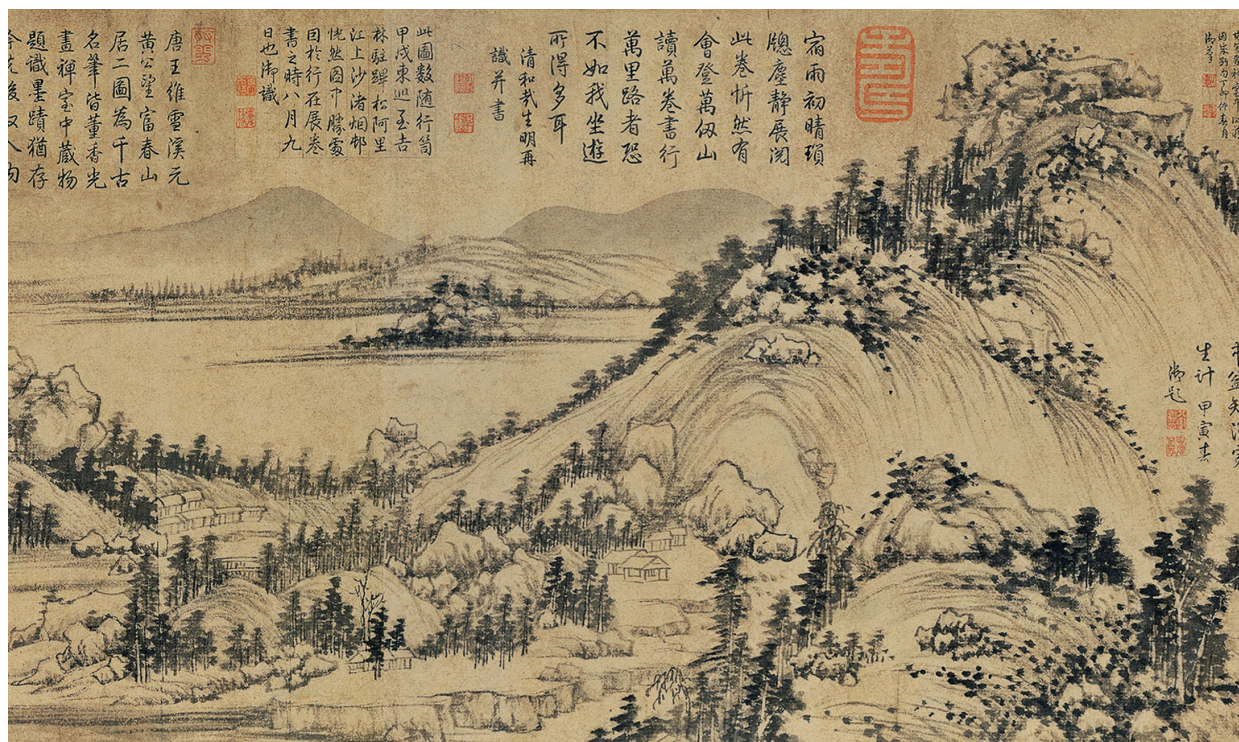 御筆
生計 甲寅春
御題
宿雨初晴瑣
牕塵靜展閱
此卷忻然有
會登萬仭山
讀萬卷書行
萬里路者恐
不如我坐遊
所得多耳
清和哉生明再
識并書
此圖數隨行笥
甲戌東巡至吉
林駐蹕松阿里
江上沙渚烟邨
恍然圖中勝處
因於行在展卷
書之時八月九
日也御識
唐王維雪溪元
黃公望富春山
居二圖為千古
名筆皆董香光
畫禪室中藏物
題識墨蹟猶存